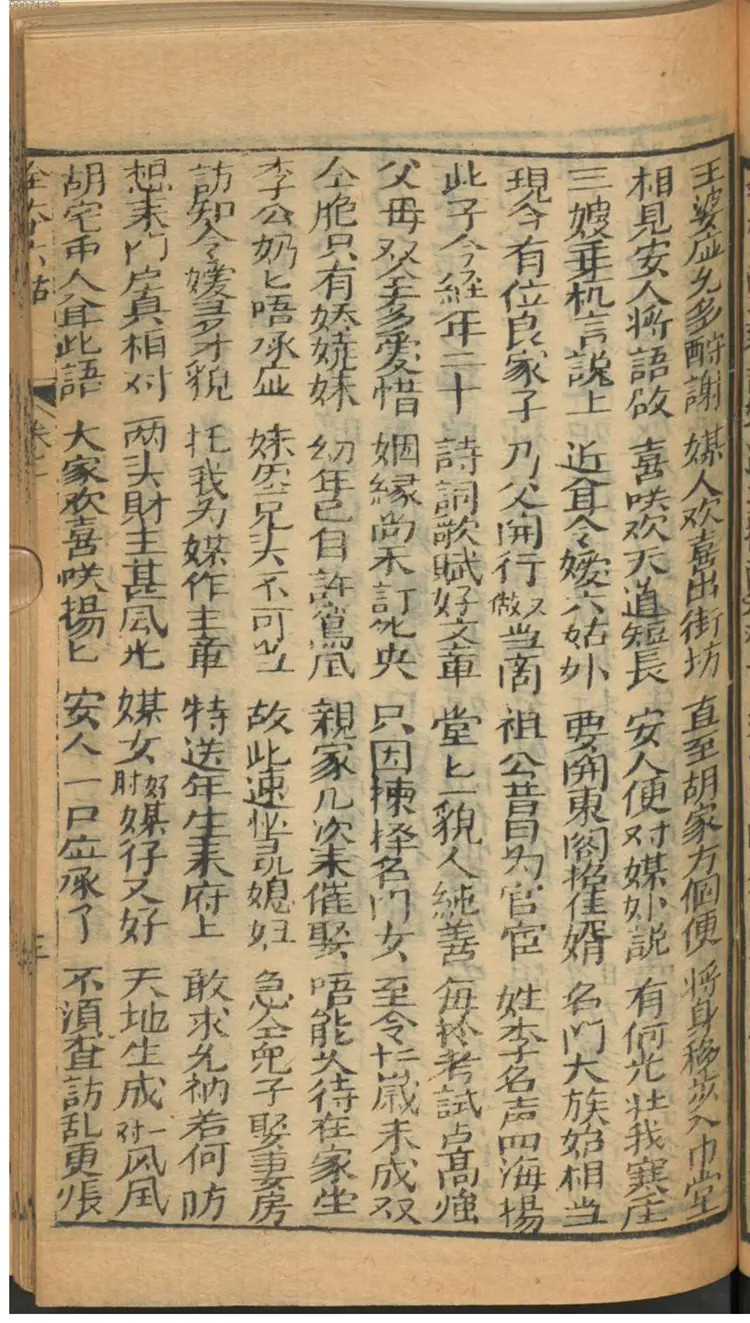 王婆应允多酧謝 媒人欢喜出街坊 直至胡家方個便 将身移步入中堂
相見安人将語啟 喜咲欢天道短長 安人便对媒妁説 有何光壮我寒庄
三嫂乗机言說上 近耸令嫒六姑外 要開東阁招佳婿 名门大族始相当
現今有位良家子 乃父開行又做当商 祖公昔日为官宦 姓李名声四海揚
此子今経年二十 詩詞歌賦好文章 堂匕一貌人純善 每於考試点高強
父母双全多愛惜 姻緣尚未訂央 只因揀择名门女 至令廿歳未成双
仝胞只有娇娆妹 幼年已自許鸾凤 親家几次来催娶 唔能久待在家坐
李公奶匕唔承应 妹兄头不可当 故此速忙寻媳妇 急仝兒子娶妻房
訪知令嫒多才貌 托我为媒作主章 特送年生来府上 敢求允衲若何防
想来门户真相对 两头財主甚风光 媒女好肘媒仔又好 天地生成一对风凰
胡宅安人耸此語 大家欢喜咲揚匕 安人一口应承了 不湏查訪乱更張
全本六姑 卷二 三